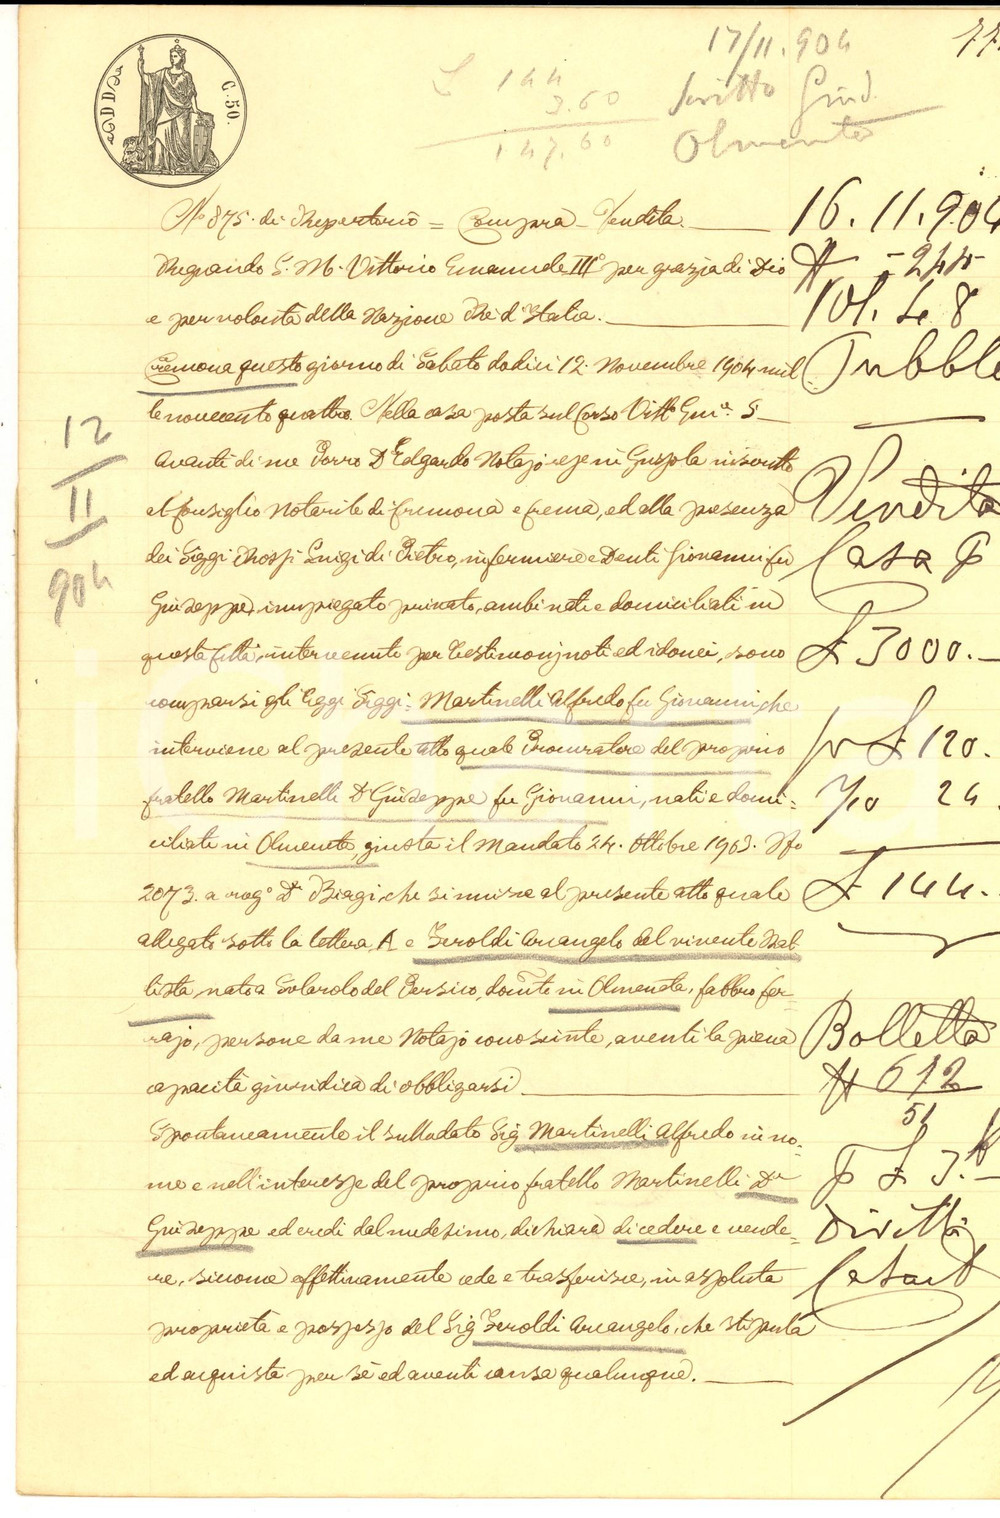 17/11.904
£ 144
3.60
147.60
scritto Giud.
Olmeneta
C. 50.
N° 875. di Repertorio = Compra-Vendita.
Regnando S. M. Vittorio Emanuele III° per grazia di Dio
e per volontà della Nazione Re d'Italia.
Cremona questo giorno di Sabato dodici 12. Novembre 1904 mil
le novecento quattro. Nella casa posta sul Corso Vitt° Em.e 5
Avanti di me Porro Dr Edgardo Notajo res.e in Gussola inscritto
al Consiglio Notarile di Cremona e Crema, ed alla presenza
dei Siggi Rossi Luigi di Pietro, infermiere e Denti Giovanni fu
Giuseppe, impiegato privato, ambi nati e domiciliati in
questa Città, intervenuti per testimonj noti ed idonei, sono
comparsi gli Egggi Siggi: Martinelli Alfredo fu Giovanni, che
interviene al presente atto quale Procuratore del proprio
fratello Martinelli Dr Giuseppe fu Giovanni, nati e domi=
ciliati in Olmeneta, giusta il Mandato 24. Ottobre 1903. N°
2073. a rog° Dr Biagi, che si unisce al presente atto quale
allegato sotto la lettera A e Geroldi Arcangelo del vivente Bat
tista, nato a Solarolo del Persico, domto in Olmeneta, fabbro fer-
rajo, persone da me Notajo conosciute, aventi la piena
capacità giuridica di obbligarsi
Spontaneamente il sullodato Sig. Martinelli Alfredo in no-
me e nell'interesse del proprio fratello Martinelli Dr
Giuseppe ed eredi dal medesimo, dichiara di cedere e vende=
re, siccome effettivamente cede e trasferisce, in assoluta
proprietà e possesso del Sig. Geroldi Arcangelo, che stipula
ed acquista per sè ed aventi causa qualunque.
12
11
904
16.11.904
# -244
Vol. 48
Pubbl
Vendita
Casa
£ 3000.-
£ 120.
24
£ 144.
Bolletta
# 612
51
£ 3.
Diritti